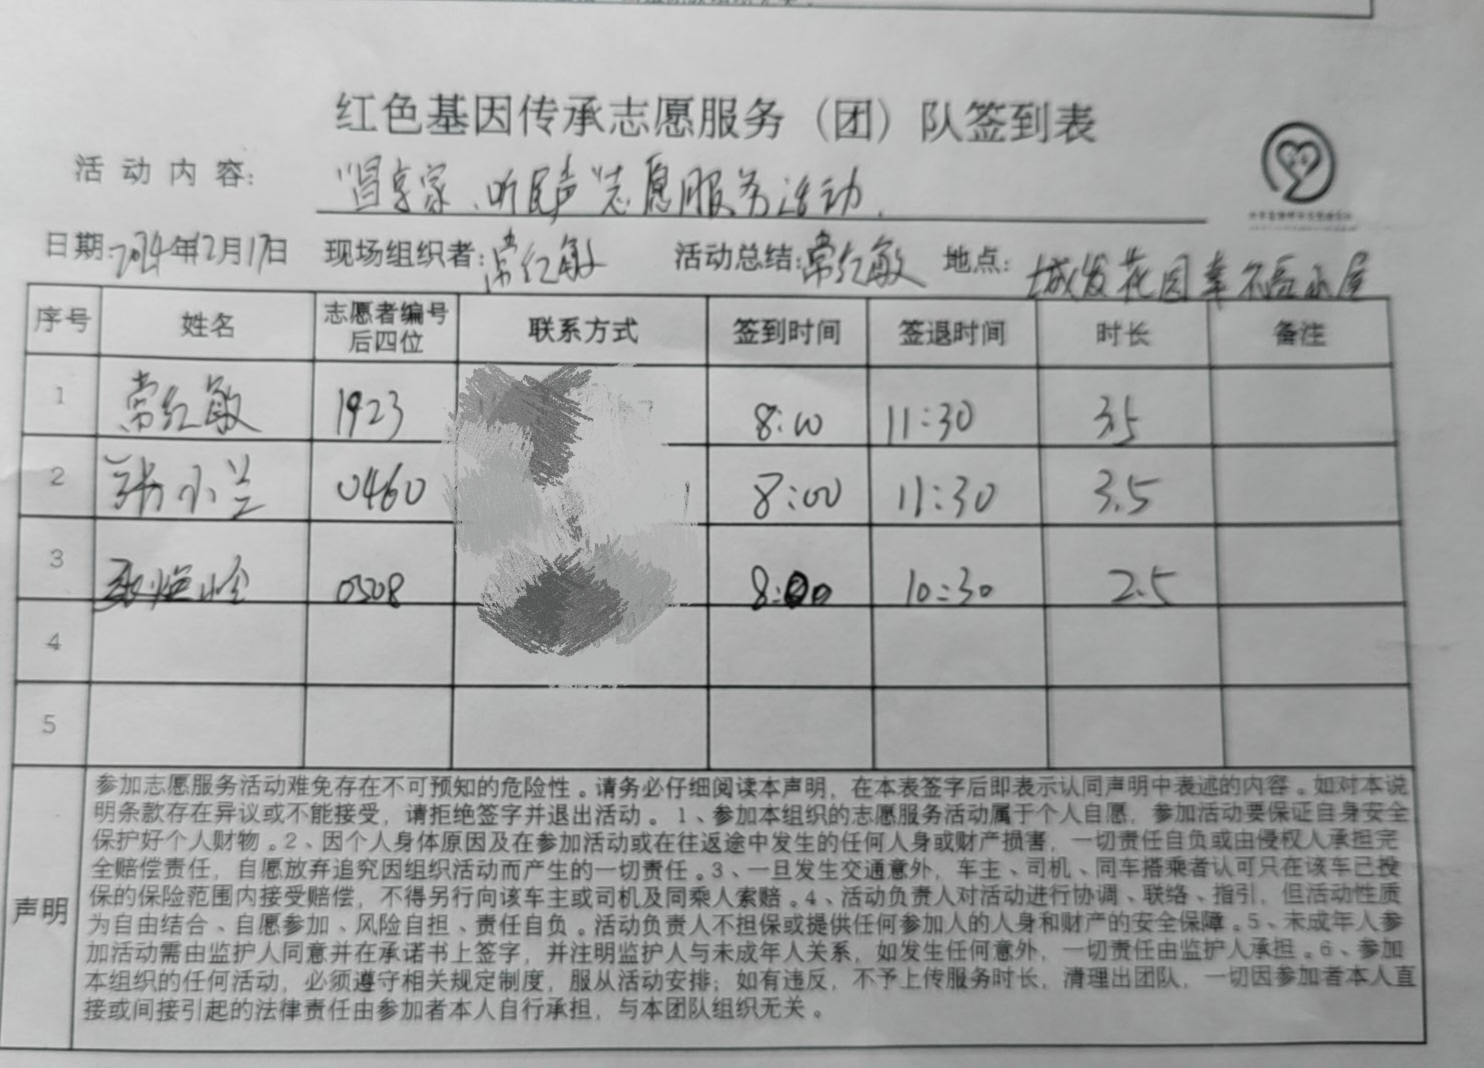 红色基因传承志愿服务（团）队签到表
活动内容: "昌享家、听民声"志愿服务活动.
日期:2024年12月17日 现场组织者:常红敏 活动总结:常红敏 地点: 城发花园幸福小屋
序号 姓名 志愿者编号后四位 联系方式 签到时间 签退时间 时长 备注
1 常红敏 1923 8:00 11:30 3.5
2 张小兰 0460 8:00 11:30 3.5
3 0508 8:00 10:30 2.5
4
5
声明
参加志愿服务活动难免存在不可预知的危险性。请务必仔细阅读本声明，在本表签字后即表示认同声明中表述的内容。如对本说
明条款存在异议或不能接受，请拒绝签字并退出活动。1、参加本组织的志愿服务活动属于个人自愿，参加活动要保证自身安全
保护好个人财物。2、因个人身体原因及在参加活动或在往返途中发生的任何人身或财产损害，一切责任自负或由侵权人承担完
全赔偿责任，自愿放弃追究因组织活动而产生的一切责任。3、一旦发生交通意外，车主、司机、同车搭乘者认可只在该车已投
保的保险范围内接受赔偿，不得另行向该车主或司机及同乘人索赔。4、活动负责人对活动进行协调、联络、指引，但活动性质
为自由结合、自愿参加、风险自担、责任自负。活动负责人不担保或提供任何参加人的人身和财产的安全保障。5、未成年人参
加活动需由监护人同意并在承诺书上签字，并注明监护人与未成年人关系，如发生任何意外，一切责任由监护人承担。6、参加
本组织的任何活动，必须遵守相关规定制度，服从活动安排；如有违反，不予上传服务时长，清理出团队，一切因参加者本人直
接或间接引起的法律责任由参加者本人自行承担，与本团队组织无关。